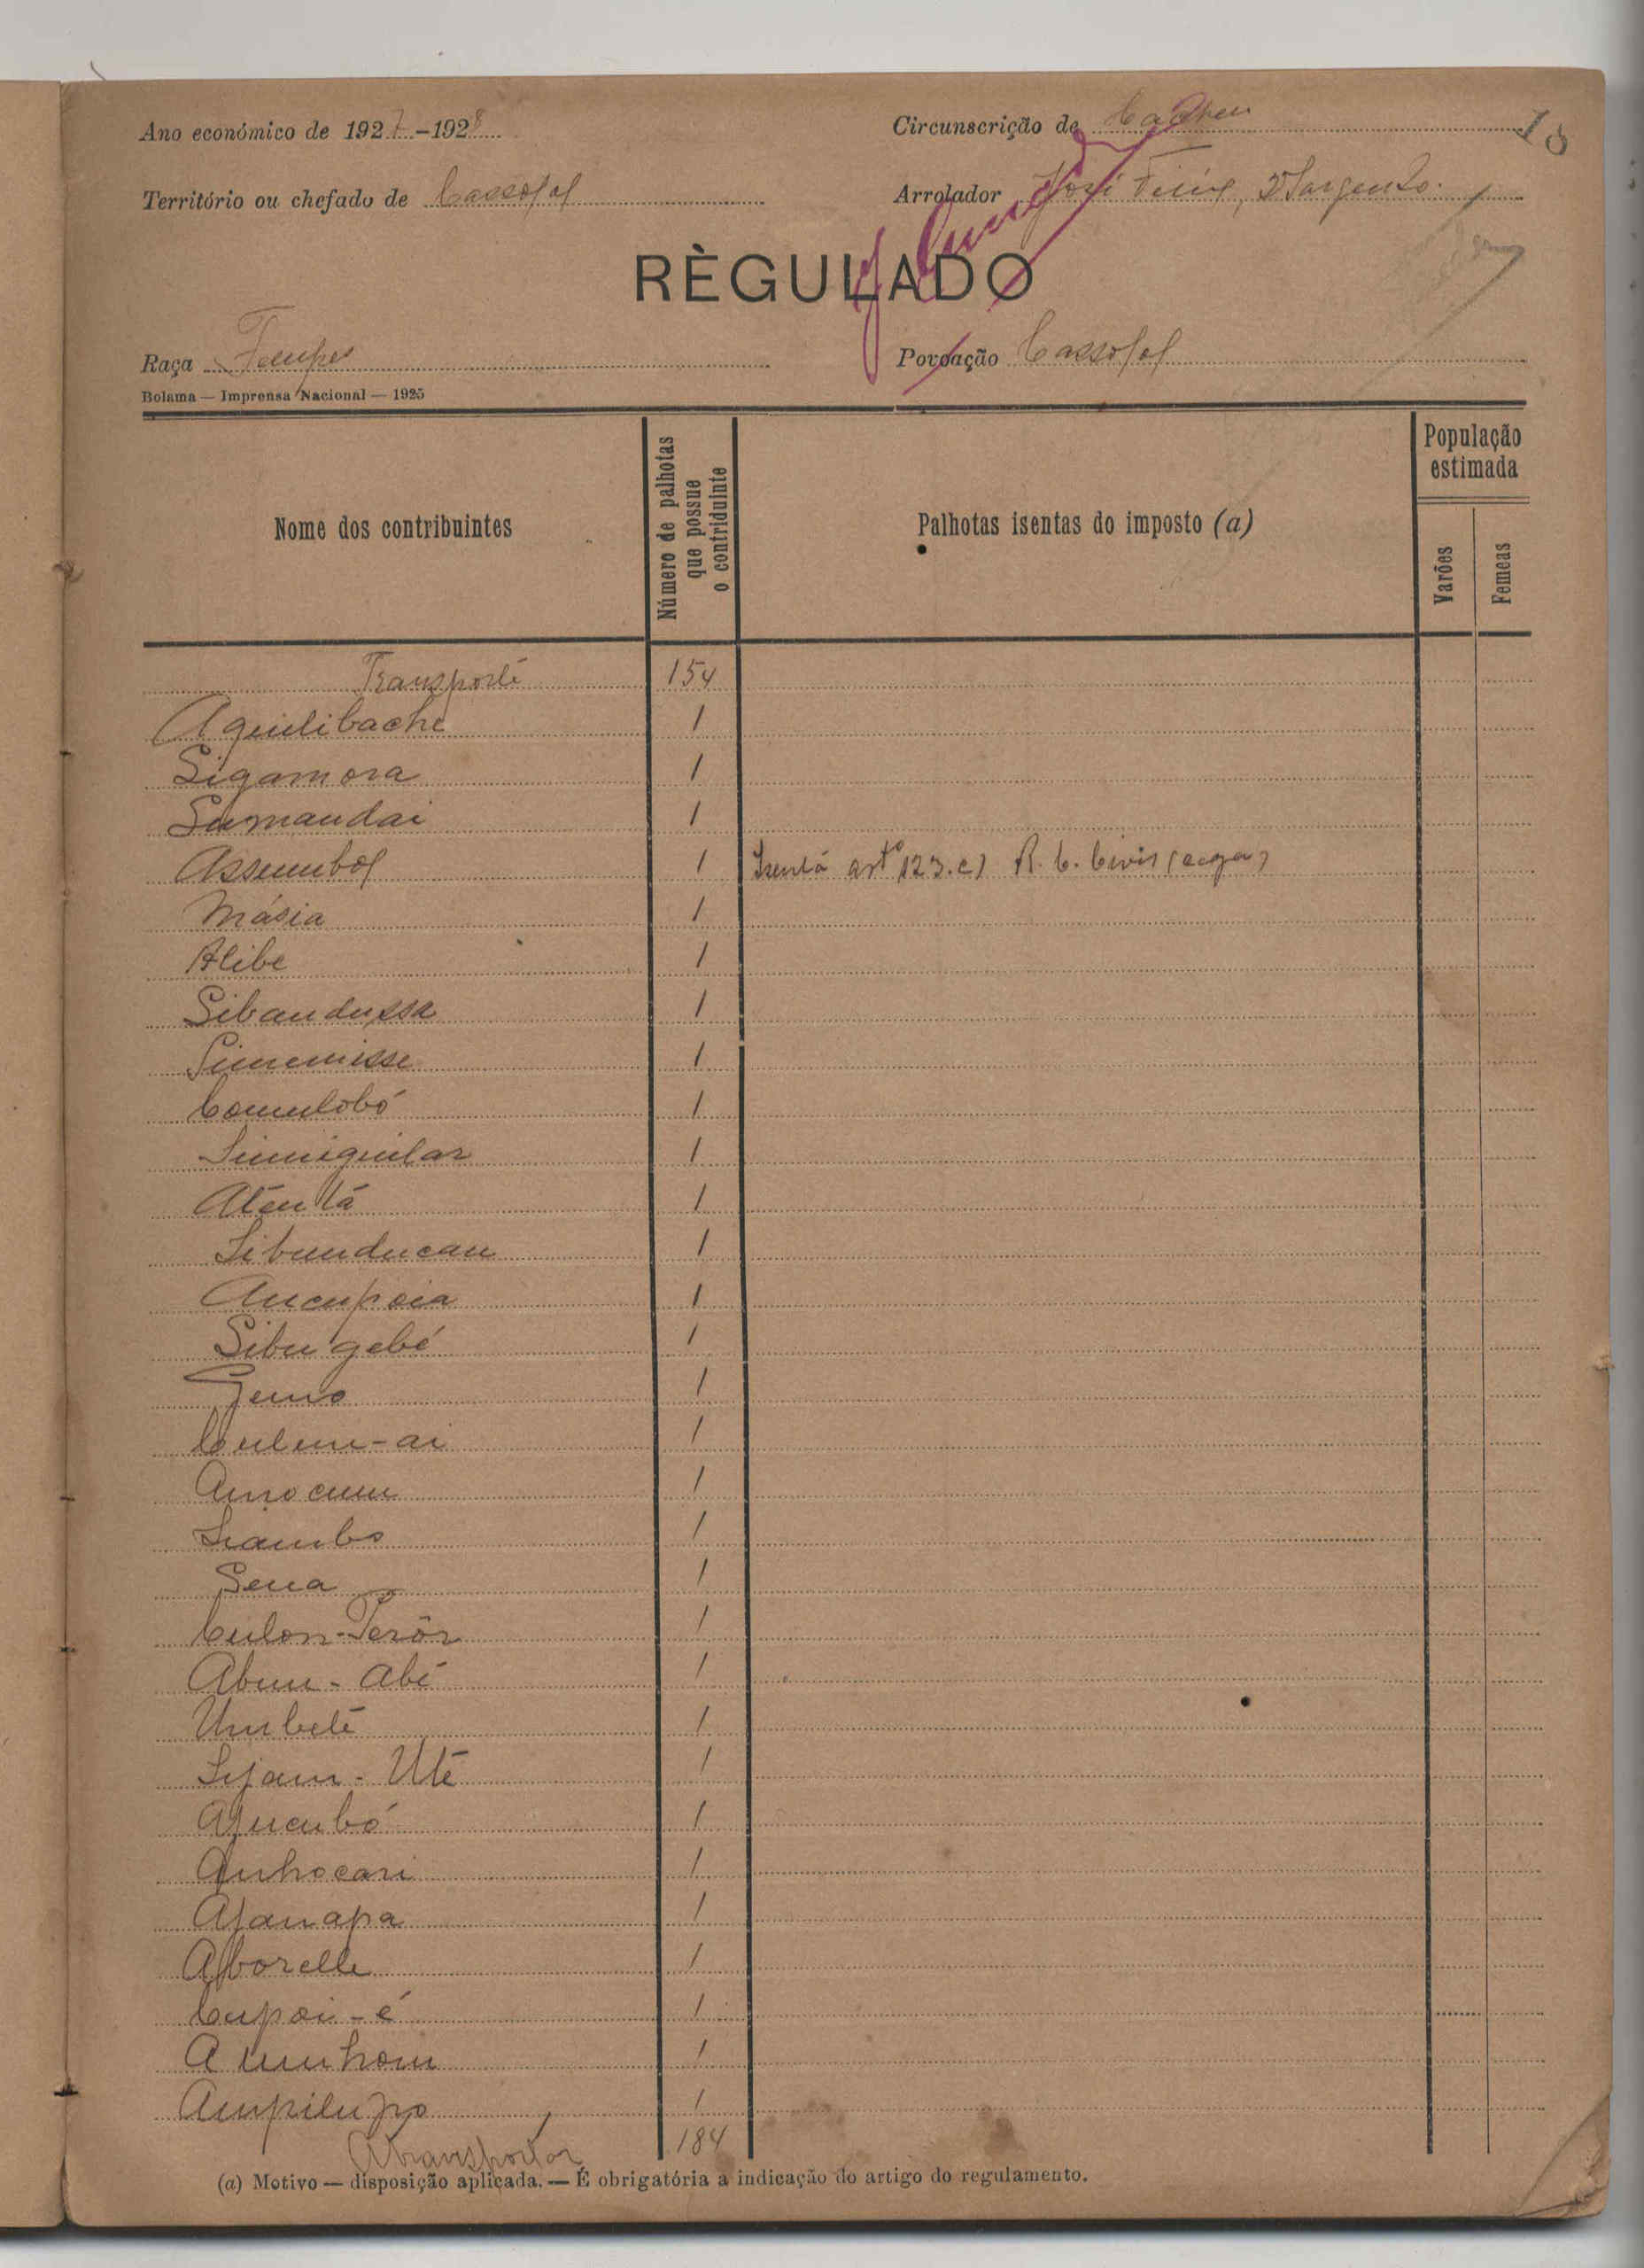 Ano económico de 1927-1928
Circunscrição de Cacheu
18
Território ou chefado de Cassolol
Arrolador José 2º Sargento.
RÈGULADO
Raça Felupes
Povoação Cassolol
Bolama — Imprensa Nacional — 1925
Nome dos contribuintes
Número de palhotas que possue o contriduinte
Palhotas isentas do imposto (a)
População estimada
Varões
Femeas
Transporte 154
Aguilibache 1
Sigamora 1
Sumandai 1
Assumbol 1 Isenta artº 123. c) R. C. Civis (cega)
Másia 1
Alibe 1
Sibandussa 1
Simemisse 1
Comulobó 1
Simiguilar 1
Atentá 1
Sibunducau 1
Ancupoia 1
Sibugebé 1
Jemo 1
Culum-ai 1
Amocum 1
Siambo 1
Sena 1
Culon-Terôr 1
Abum-Abé 1
Umbeté 1
Sijam-Uté 1
Ajucubó 1
Anhocari 1
Ajanapa 1
Alborelle 1
Cupoi-é 1
Amunhom 1
Ampilujo 1
A transportar 184
(a) Motivo — disposição aplicada. — É obrigatória a indicação do artigo do regulamento.